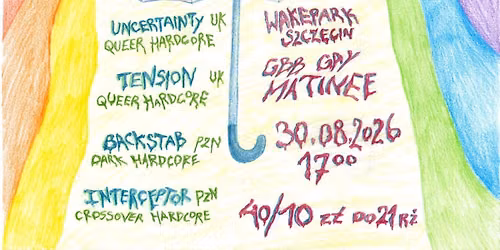 UNCERTAINTY UK
QUEER HARDCORE
TENSION UK
QUEER HARDCORE
BACKSTAB PZN
DARK HARDCORE
INTERCEPTOR PZN
CROSSOVER HARDCORE
WAKEPARK
SZCZĘCIN
GBB GAY
MATINEE
30.08.2026
17⁰⁰
40/10 zł DO 21 RŻ